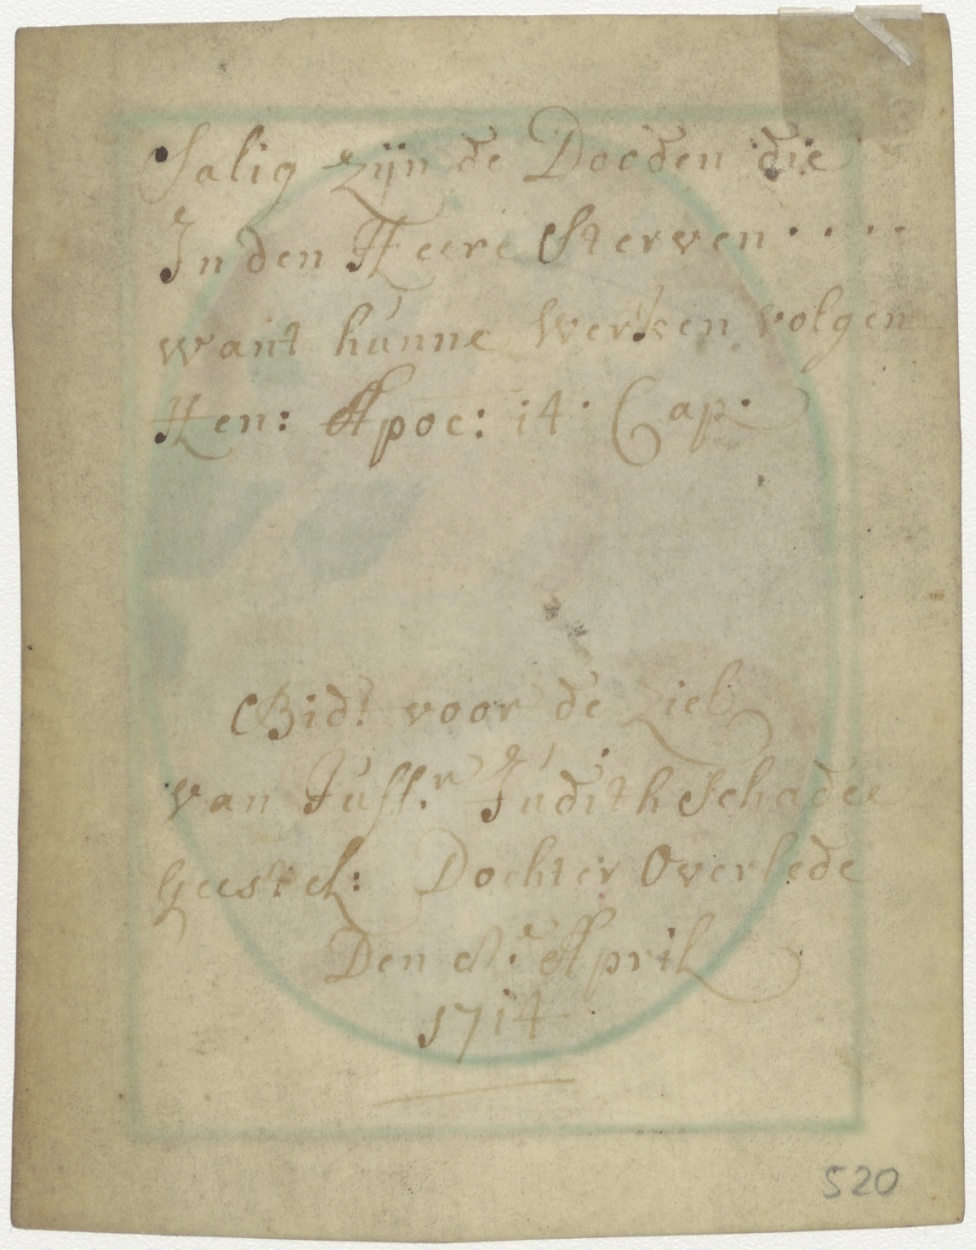 Salig zijn de Dooden die
In den Heere Sterven · · · ·
want hunne werken volgen
Hen: Apoc: 14· Cap·
Bidt voor de ziel
van Juff.r Judith Schadee
Geestel: Dochter Overlede
Den 8.e April
1714
520